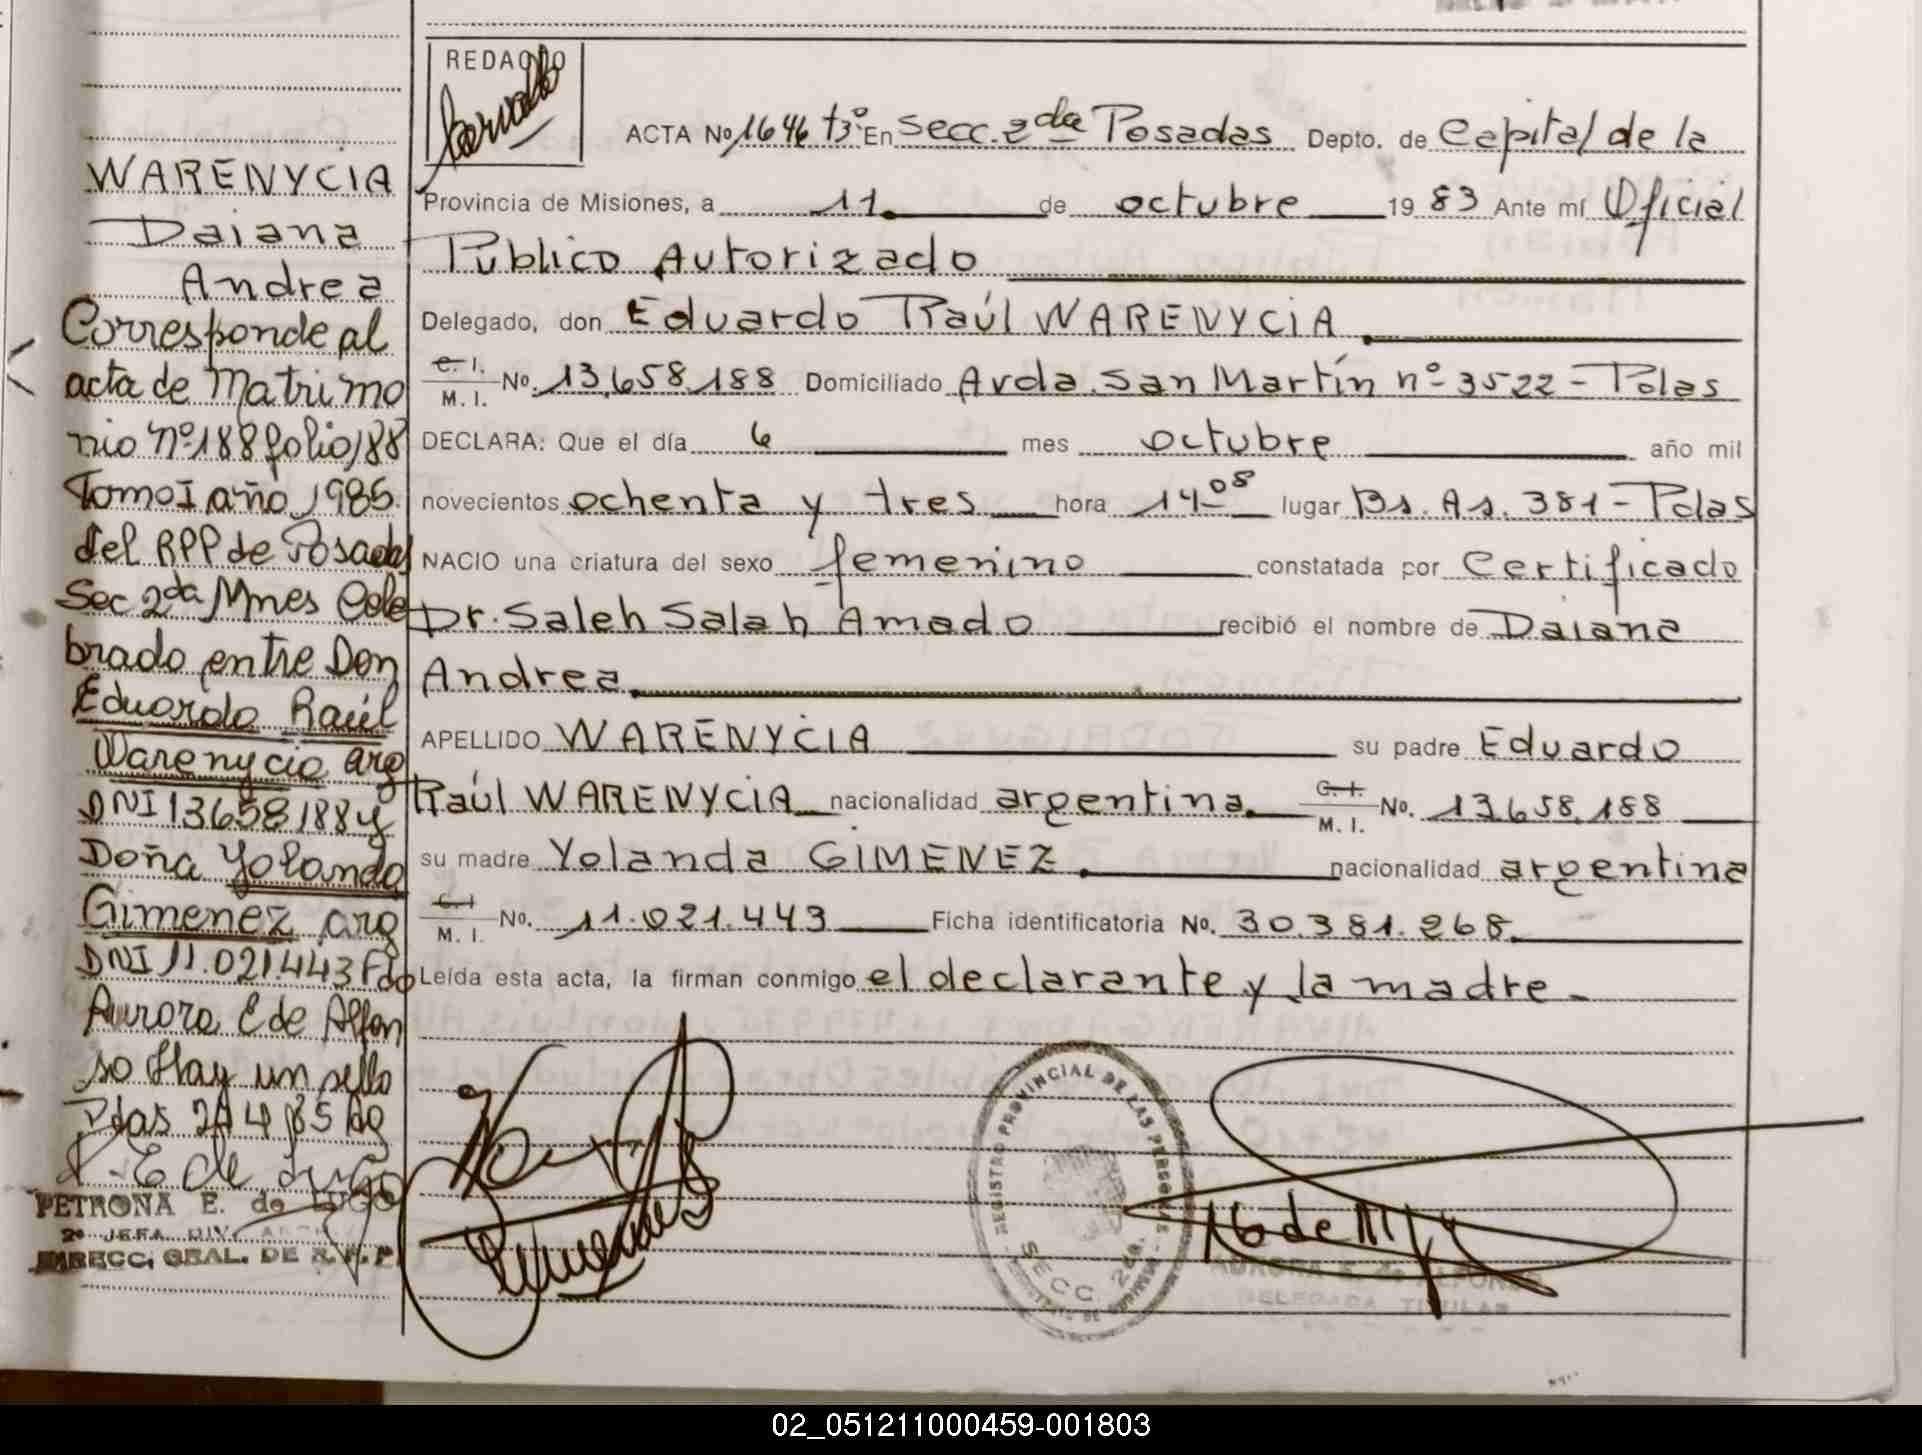 WARENYCIA
Daiana
Andrea
Corresponde al
acta de Matrimo
nio Nº 188 folio 188
Tomo I año 1985
del RPP de Posadas
Sec 2da Mnes Cele
brado entre Don
Eduardo Raúl
Warenycia arg
DNI 13658188 y
Doña Yolanda
Gimenez arg
DNI 11.021.443 Fdo
Aurora E de Alfon
so Hay un sello
Pdas 24 85
PETRONA E. de LUGO
2ª JEFA DIV.
DIRECC. GRAL. DE R. P. P.
REDACTO
ACTA Nº 1646 tº3º En Secc. 2da Posadas Depto. de Capital de la
Provincia de Misiones, a 11 de octubre 1983 Ante mí Oficial
Público Autorizado
Delegado, don Eduardo Raúl WARENYCIA
C. I.
M. I. Nº. 13.658.188 Domiciliado Avda. San Martín nº 3522 - Pdas
DECLARA: Que el día 6 mes octubre año mil
novecientos ochenta y tres hora 14-08 lugar Bs. As. 381 - Pdas
NACIO una criatura del sexo femenino constatada por Certificado
Dr. Saleh Salah Amado recibió el nombre de Daiana
Andrea
APELLIDO WARENYCIA su padre Eduardo
Raúl WARENYCIA nacionalidad argentina C. I.
M. I. Nº. 13.658.188
su madre Yolanda GIMENEZ nacionalidad argentina
C. I
M. I. Nº. 11.021.443 Ficha identificatoria Nº. 30.381.268
Leída esta acta, la firman conmigo el declarante y la madre.
REGISTRO PROVINCIAL DE LAS PERSONAS
SECC. 2da.
AURORA E. de ALFONSO
DELEGADA TITULAR
02_051211000459-001803